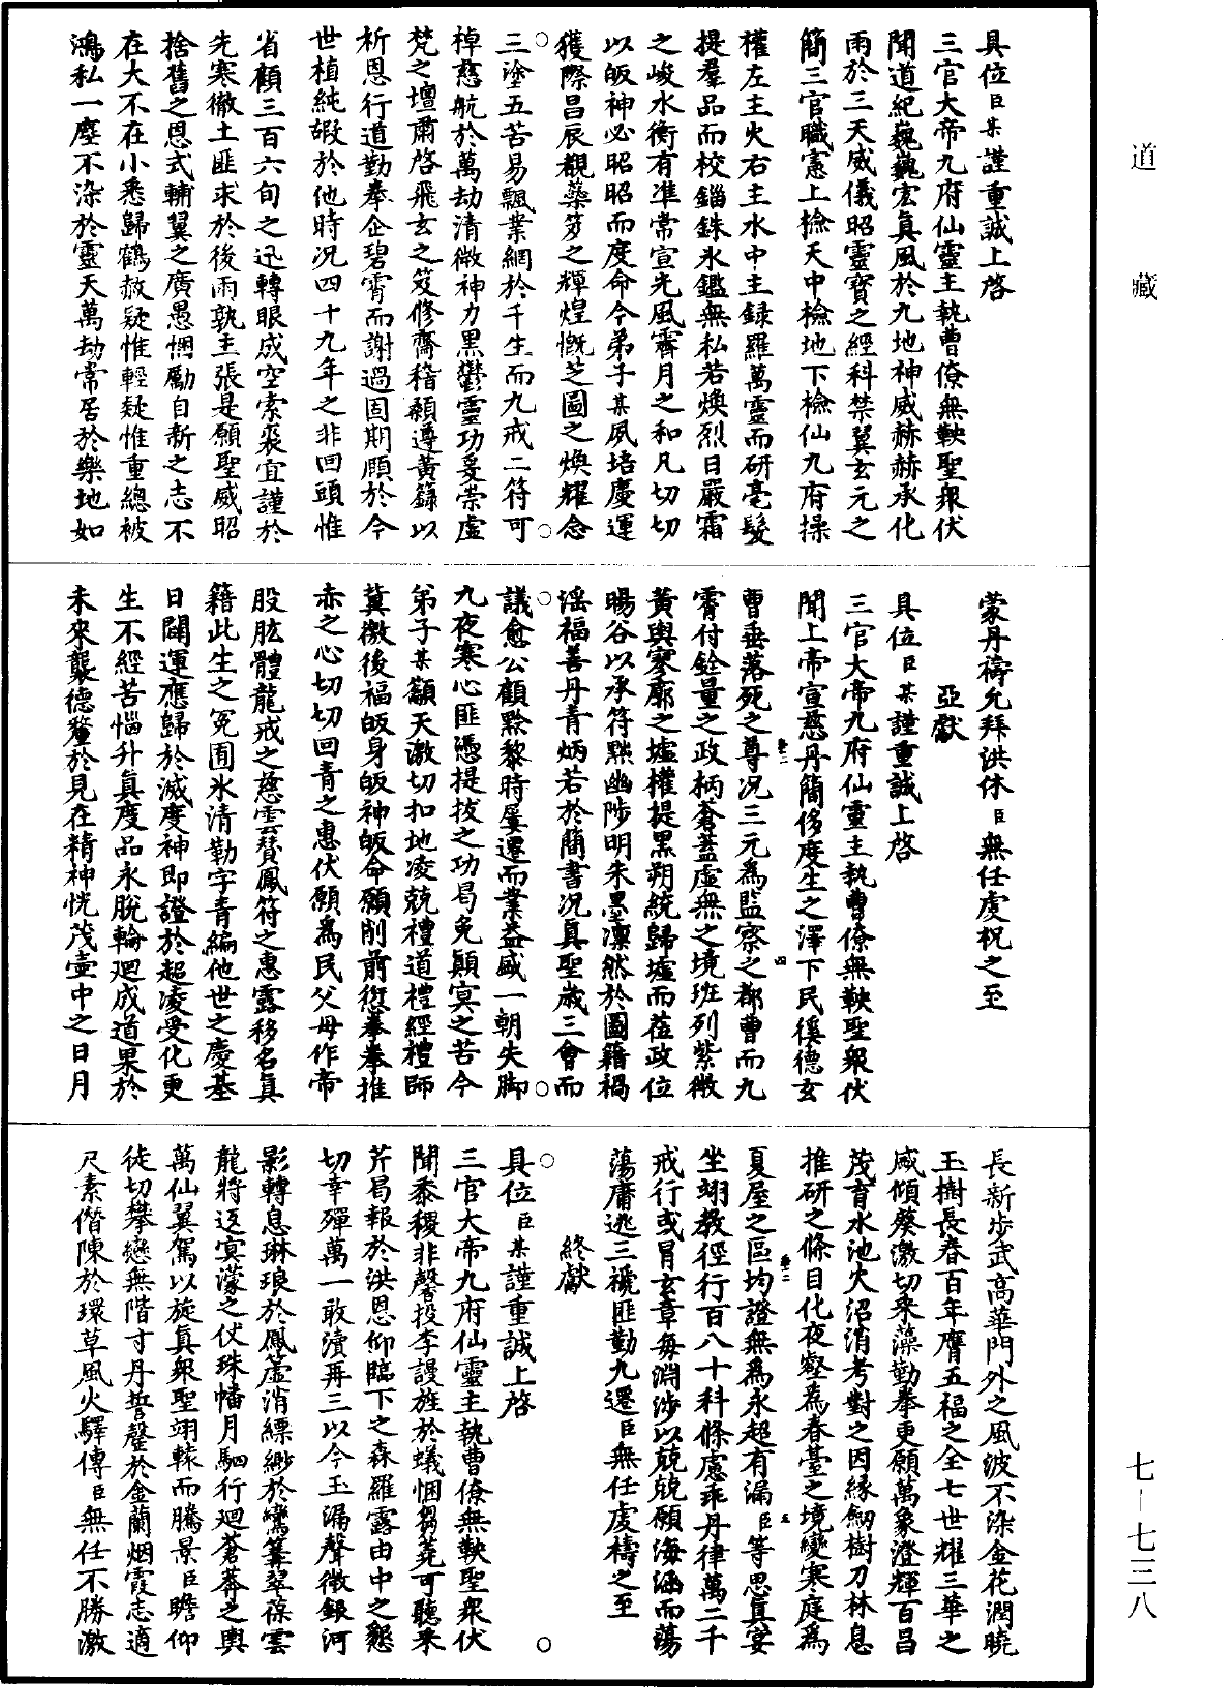 具位臣某謹重誠上啓
三官大帝九府仙靈主執曹僚無鞅聖衆伏
聞道紀巍巍宏眞風於九地神威赫赫承化
雨於三天威儀昭靈寶之經科禁翼玄元之
簡三官職憲上檢天中檢地下檢仙九府操
權左主火右主水中主録羅萬靈而研毫髮
提羣品而校錙銖氷鑑無私若煥烈日嚴霜
之峻水衡有準常宣光風霽月之和凡切切
以皈神必昭昭而度命今弟子某夙培慶運
獲際昌辰觀蘂笈之輝煌慨芝圖之煥耀念
三塗五苦易飄業網於千生而九戒二符可
棹慈航於萬劫清微神力黑鬱靈功爰崇虛
梵之壇肅啓飛玄之笈修齋稽顙遵黃籙以
析恩行道勤拳企碧霄而謝過固期頤於今
世植純嘏於他時况四十九年之非回頭惟
省顧三百六旬之迅轉眼成空索裘宜謹於
先寒徹土匪求於後雨孰主張是願聖威昭
捨舊之恩式輔翼之廣愚悃勵自新之志不
在大不在小悉歸鶴赦疑惟輕疑惟重總被
鴻私一塵不染於靈天萬劫常居於樂地如
蒙丹禱允拜洪休臣無任虔祝之至
亞獻
具位臣某謹重誠上啓
三官大帝九府仙靈主執曹僚無鞅聖衆伏
聞上帝宣慈丹簡侈度生之澤下民徯德玄
曹垂落死之尊况三元爲監察之都曹而九
霄付銓量之政柄蒼蓋虛無之境班列紫微
黃輿寥廓之墟權提黑朔統歸墟而蒞政位
暘谷以承符黜幽陟明朱墨凜然於圖籍禍
淫福善丹青炳若於簡書况眞聖歲三會而
議愈公顧黔黎時屢遷而業益盛一朝失脚
九夜寒心匪憑提拔之功曷免顛冥之苦今
弟子某籲天激切扣地凌兢禮道禮經禮師
冀徼後福皈身皈神皈命願削前愆拳拳推
赤之心切切回青之惠伏願爲民父母作帝
股肱體龍戒之慈雲賛鳳符之惠露移名眞
籍此生之冤囿氷清勒字青編他世之慶基
日闢運應歸於滅度神即證於超凌受化更
生不經苦惱升眞度品永脫輪廻成道果於
未來襲德釐於見在精神恍茂壷中之日月
長新步武高華門外之風波不染金花潤曉
玉樹長春百年膺五福之全七世耀三華之
咸傾葵激切采藻勤拳更願萬象澄輝百昌
茂育水池火沼消考對之因緣劒樹刀林息
推研之條目化夜壑爲春臺之境變寒庭爲
夏屋之區均證無爲永超有漏臣等思眞宴
坐翊教徑行百八十科條慮乖丹律萬二千
戒行或冒玄章每淵涉以兢兢願海涵而蕩
蕩庸逃三襯匪勤九遷臣無任虔禱之至
終獻
具位臣某謹重誠上啓
三官大帝九府仙靈主執曹僚無鞅聖衆伏
聞黍稷非馨投李謾旌於蟻悃芻蕘可聽采
芹曷報於洪恩仰臨下之森羅露由中之懇
切幸殫萬一敢瀆再三以今玉漏聲微銀河
影轉息琳琅於鳳蓋消縹緲於鸞篝翠葆雲
龍將返㝠濛之仗珠幡月駟行廻蒼莽之輿
萬仙翼駕以旋眞衆聖翊轅而騰景臣瞻仰
徒切攀戀無階寸丹誓罄於金蘭烟霞志適
尺素僭陳於環草風火驛傳臣無任不勝激
道藏
七-七三八